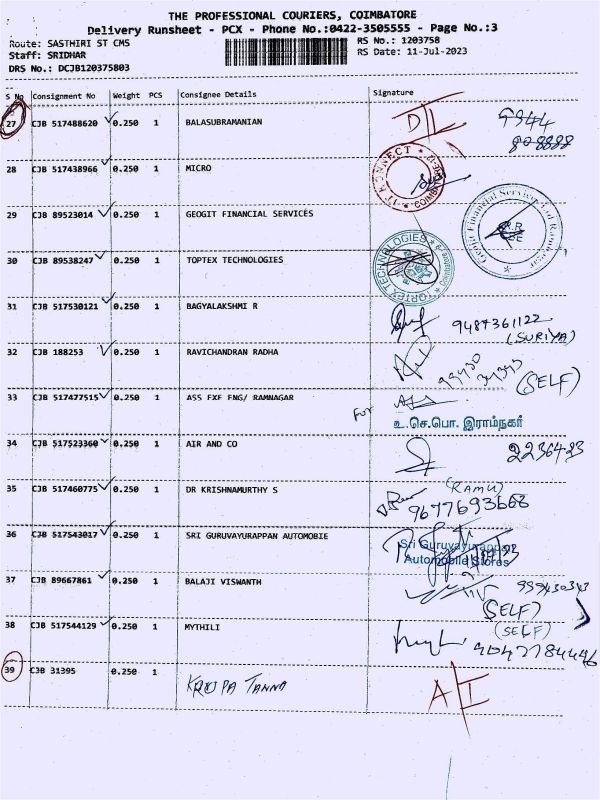 THE PROFESSIONAL COURIERS, COIMBATORE
Delivery Runsheet - PCX - Phone No.:0422-3505555 - Page No.:3
Route: SASTHIRI ST CMS RS No.: 1203758
Staff: SRIDHAR RS Date: 11-Jul-2023
DRS No.: DCJB120375803
S No Consignment No Weight PCS Consignee Details Signature
27 CJB 517488620 0.250 1 BALASUBRAMANIAN D/L 9944
808888
28 CJB 517438966 0.250 1 MICRO
29 CJB 89523014 0.250 1 GEOGIT FINANCIAL SERVICES
30 CJB 89538247 0.250 1 TOPTEX TECHNOLOGIES TOPTEX TECHNOLOGIES
31 CJB 517530121 0.250 1 BAGYALAKSHMI R 9487361122
(SURIYA)
32 CJB 188253 0.250 1 RAVICHANDRAN RADHA
(SELF)
33 CJB 517477515 0.250 1 ASS EXF ENG/ RAMNAGAR
For உ.செ.பொ. இராம்நகர்
34 CJB 517523360 0.250 1 AIR AND CO 2236423
35 CJB 517460775 0.250 1 DR KRISHNAMURTHY S (RAMU)
9677693668
36 CJB 517543017 0.250 1 SRI GURUVAYURAPPAN AUTOMOBIE Sri Guruvayurappan
Automobile Stores
37 CJB 89667861 0.250 1 BALAJI VISWANTH
(SELF)
38 CJB 517544129 0.250 1 MYTHILI (SELF)
9042784446
39 CJB 31395 0.250 1 KRUPA TANNA A/I